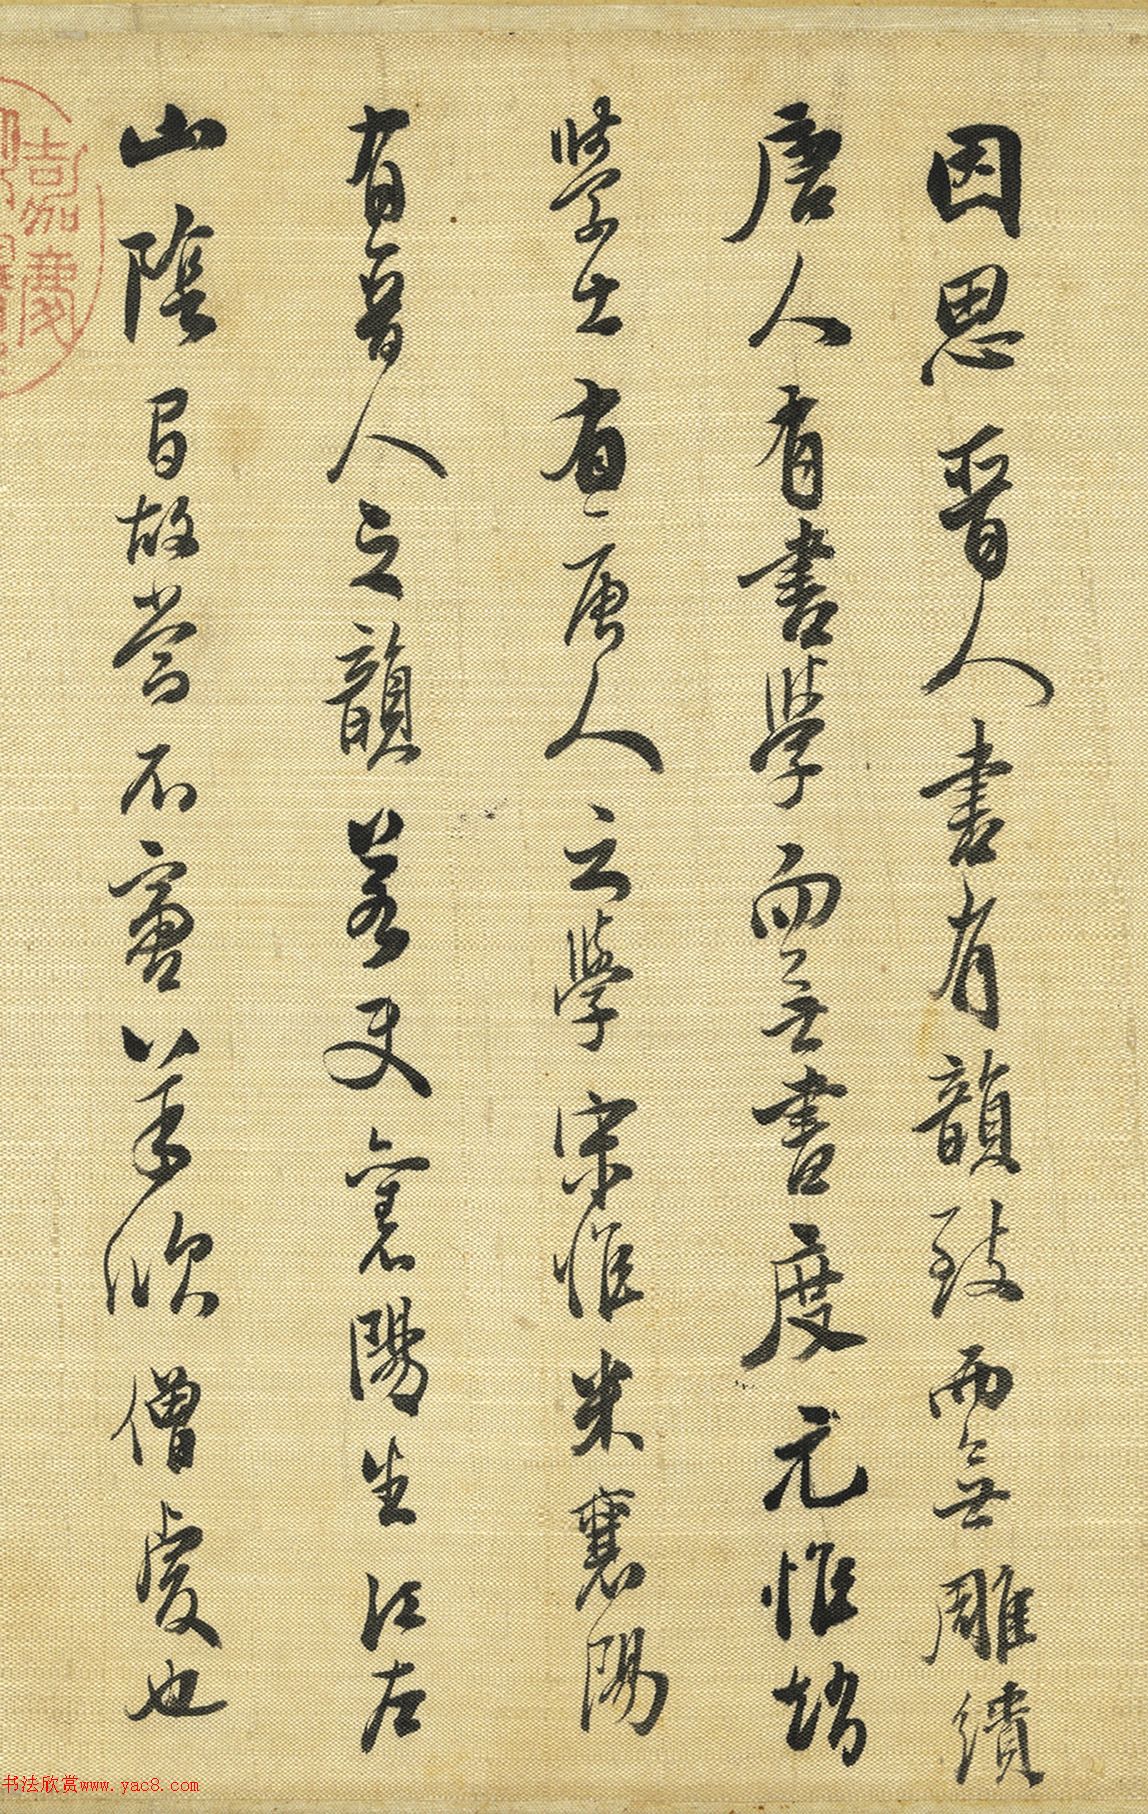 因思晉人書有韻致而無雕繢
唐人有書學而無書度元惟趙
學士有唐人之學宋惟米襄陽
有晉人之韻若使襄陽生江左
山陰間故當不審羊欣僧虔也
嘉慶
书法欣赏www.yac8.com